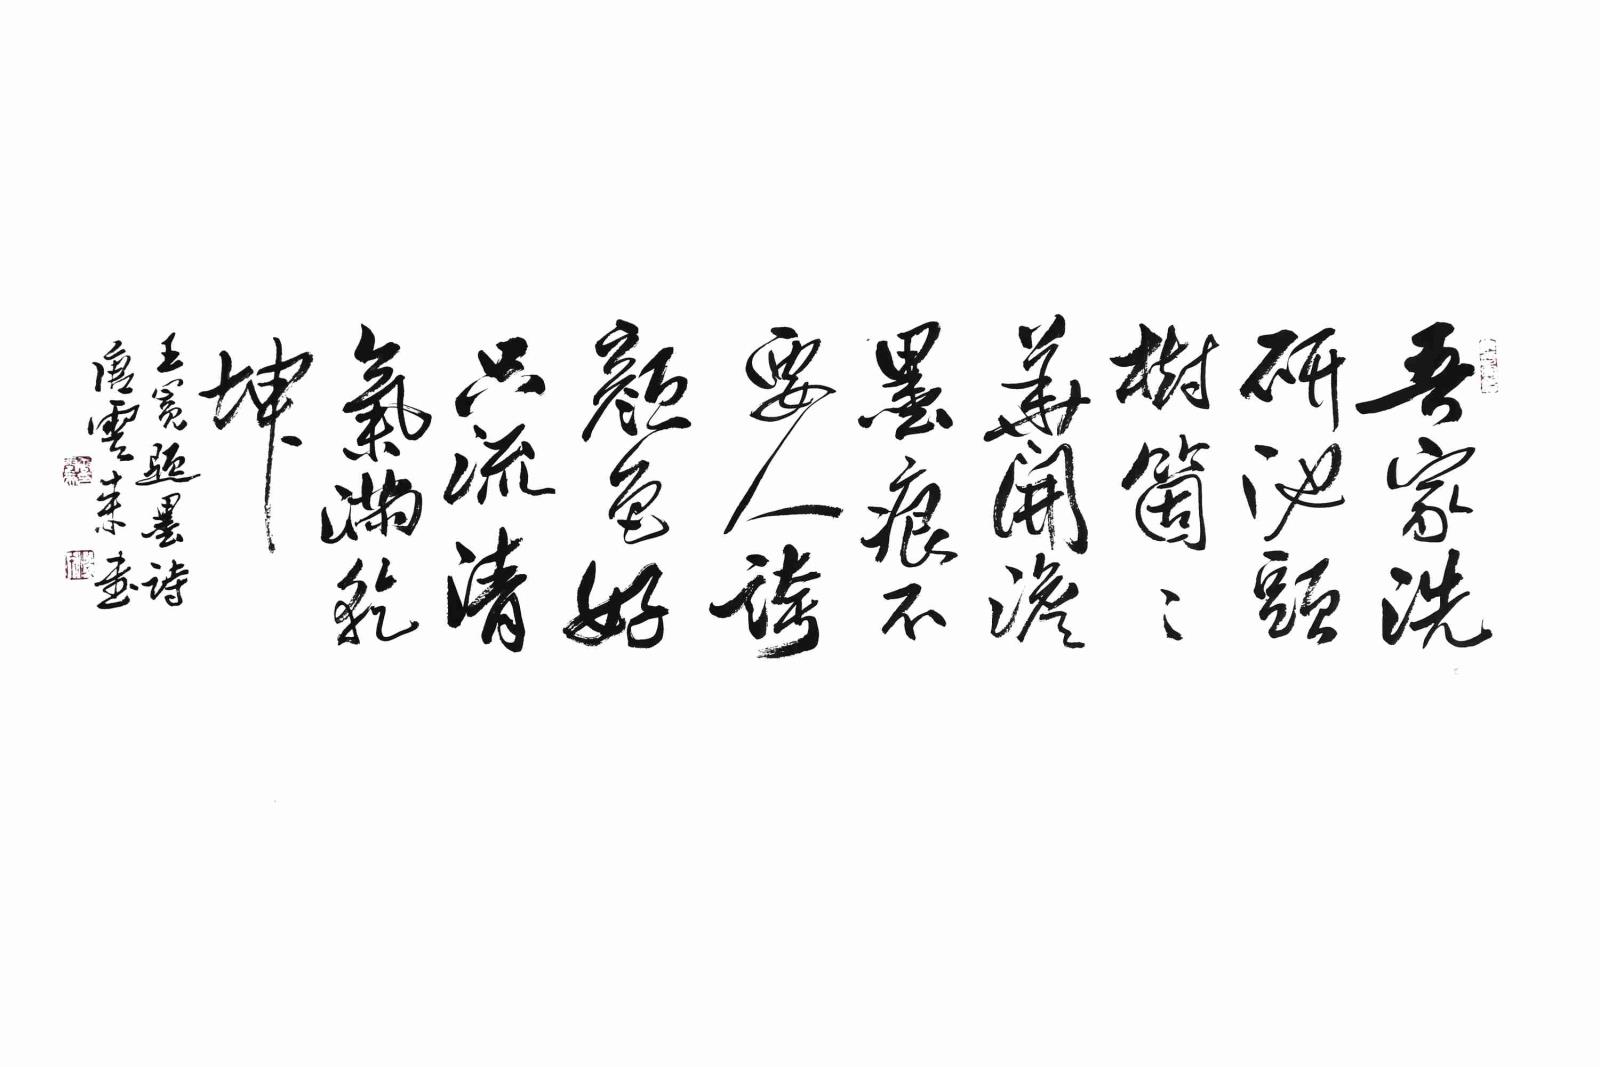 吾家洗
研池頭
樹箇〻
華開澹
墨痕不
要人誇
顏色好
只流清
氣滿乾
坤
王冕題墨詩
唐雲來書